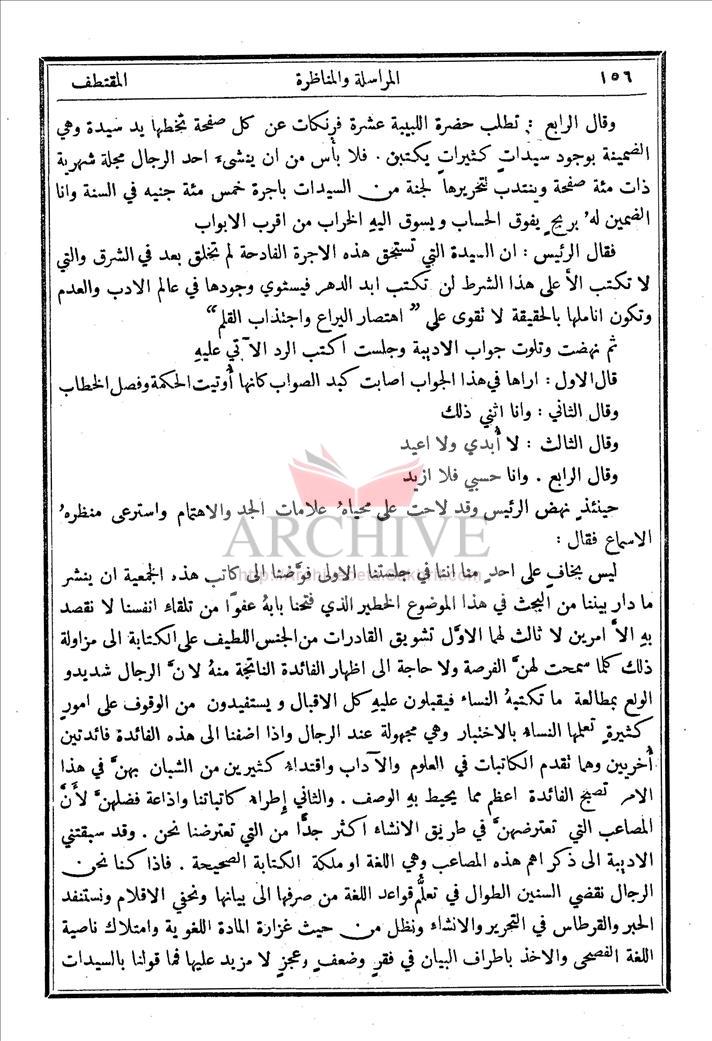 ١٥٦ المراسلة والمناظرة المقتطف
وقال الرابع : تطلب حضرة اللبيبة عشرة فرنكات عن كل صفحة تخطها يد سيدة وهي
الضمينة بوجود سيدات كثيرات يكتبن . فلا بأس من ان ينشىء احد الرجال مجلة شهرية
ذات مئة صفحة وينتدب لتحريرها لجنة من السيدات باجرة خمس مئة جنيه في السنة وانا
الضمين لهُ بربحٍ يفوق الحساب ويسوق اليهِ الخراب من اقرب الابواب
فقال الرئيس : ان السيدة التي تستحق هذه الاجرة الفادحة لم تخلق بعد في الشرق والتي
لا تكتب الأَّ على هذا الشرط لن تكتب ابد الدهر فيستوي وجودها في عالم الادب والعدم
وتكون اناملها بالحقيقة لا تقوى على ” اهتصار اليراع واجتذاب القلم “
ثم نهضت وتلوت جواب الاديبة وجلست اكتب الرد الآتي عليهِ
قال الاول : اراها في هذا الجواب اصابت كبد الصواب كانها أُوتيت الحكمة وفصل الخطاب
وقال الثاني : وانا اثني ذلك
وقال الثالث : لا أُبدي ولا اعيد
وقال الرابع . وانا حسبي فلا ازيد
حينئذٍ نهض الرئيس وقد لاحت على محياهُ علامات الجد والاهتمام واسترعى منظرهُ
ARCHIVE
الاسماع فقال :
ليس بخافٍ على احدٍ منا اننا في جلستنا الاولى فوَّضنا الى كاتب هذه الجمعية ان ينشر
ما دار بيننا من البحث في هذا الموضوع الخطير الذي فتحنا بابهُ عفوًا من تلقاء انفسنا لا نقصد
بهِ الأَّ امرين لا ثالث لهما الاوَّل تشويق القادرات من الجنس اللطيف على الكتابة الى مزاولة
ذلك كلما سمحت لهنَّ الفرصة ولا حاجة الى اظهار الفائدة الناتجة منهُ لانَّ الرجال شديدو
الولع بمطالعة ما تكتبهُ النساء فيقبلون عليهِ كل الاقبال ويستفيدون من الوقوف على امورٍ
كثيرةٍ تعلمها النساء بالاختبار وهي مجهولة عند الرجال واذا اضفنا الى هذه الفائدة فائدتين
أُخريين وهما تقدم الكاتبات في العلوم والآداب واقتداء كثيرين من الشبان بهنَّ في هذا
الامر تصبح الفائدة اعظم مما يحيط بهِ الوصف . والثاني إطراء كاتباتنا واذاعة فضلهنَّ لأَنَّ
المصاعب التي تعترضهنَّ في طريق الانشاء اكثر جدًّا من التي تعترضنا نحن . وقد سبقتني
الاديبة الى ذكر اهم هذه المصاعب وهي اللغة او ملكة الكتابة الصحيحة . فاذا كنا نحن
الرجال نقضي السنين الطوال في تعلُّم قواعد اللغة من صرفها الى بيانها ونحفي الاقلام ونستنفد
الحبر والقرطاس في التحرير والانشاء ونظل من حيث غزارة المادة اللغوية وامتلاك ناصية
اللغة الفصحى والاخذ باطراف البيان في فقرٍ وضعفٍ وعجزٍ لا مزيد عليها فما قولنا بالسيدات